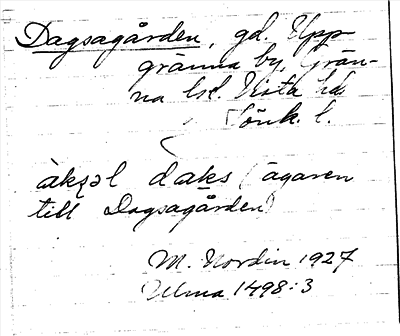 Dagsagården, gd. Upp-
gränna by, Grän-
na lsk. Vista hd.
Jönk. l.
àksəl daks (ägaren
till Dagsagården)
M. Nordin 1927
Ulma 1498:3